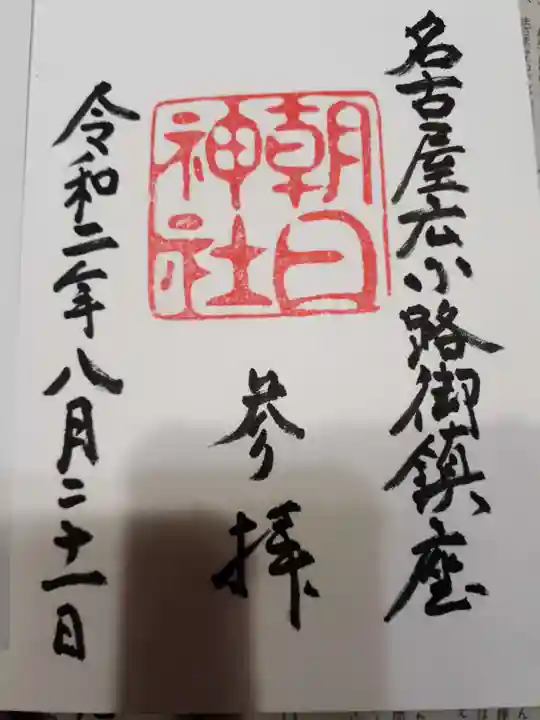 名古屋広小路御鎮座
朝日
神社
参拝
令和二年八月二十一日